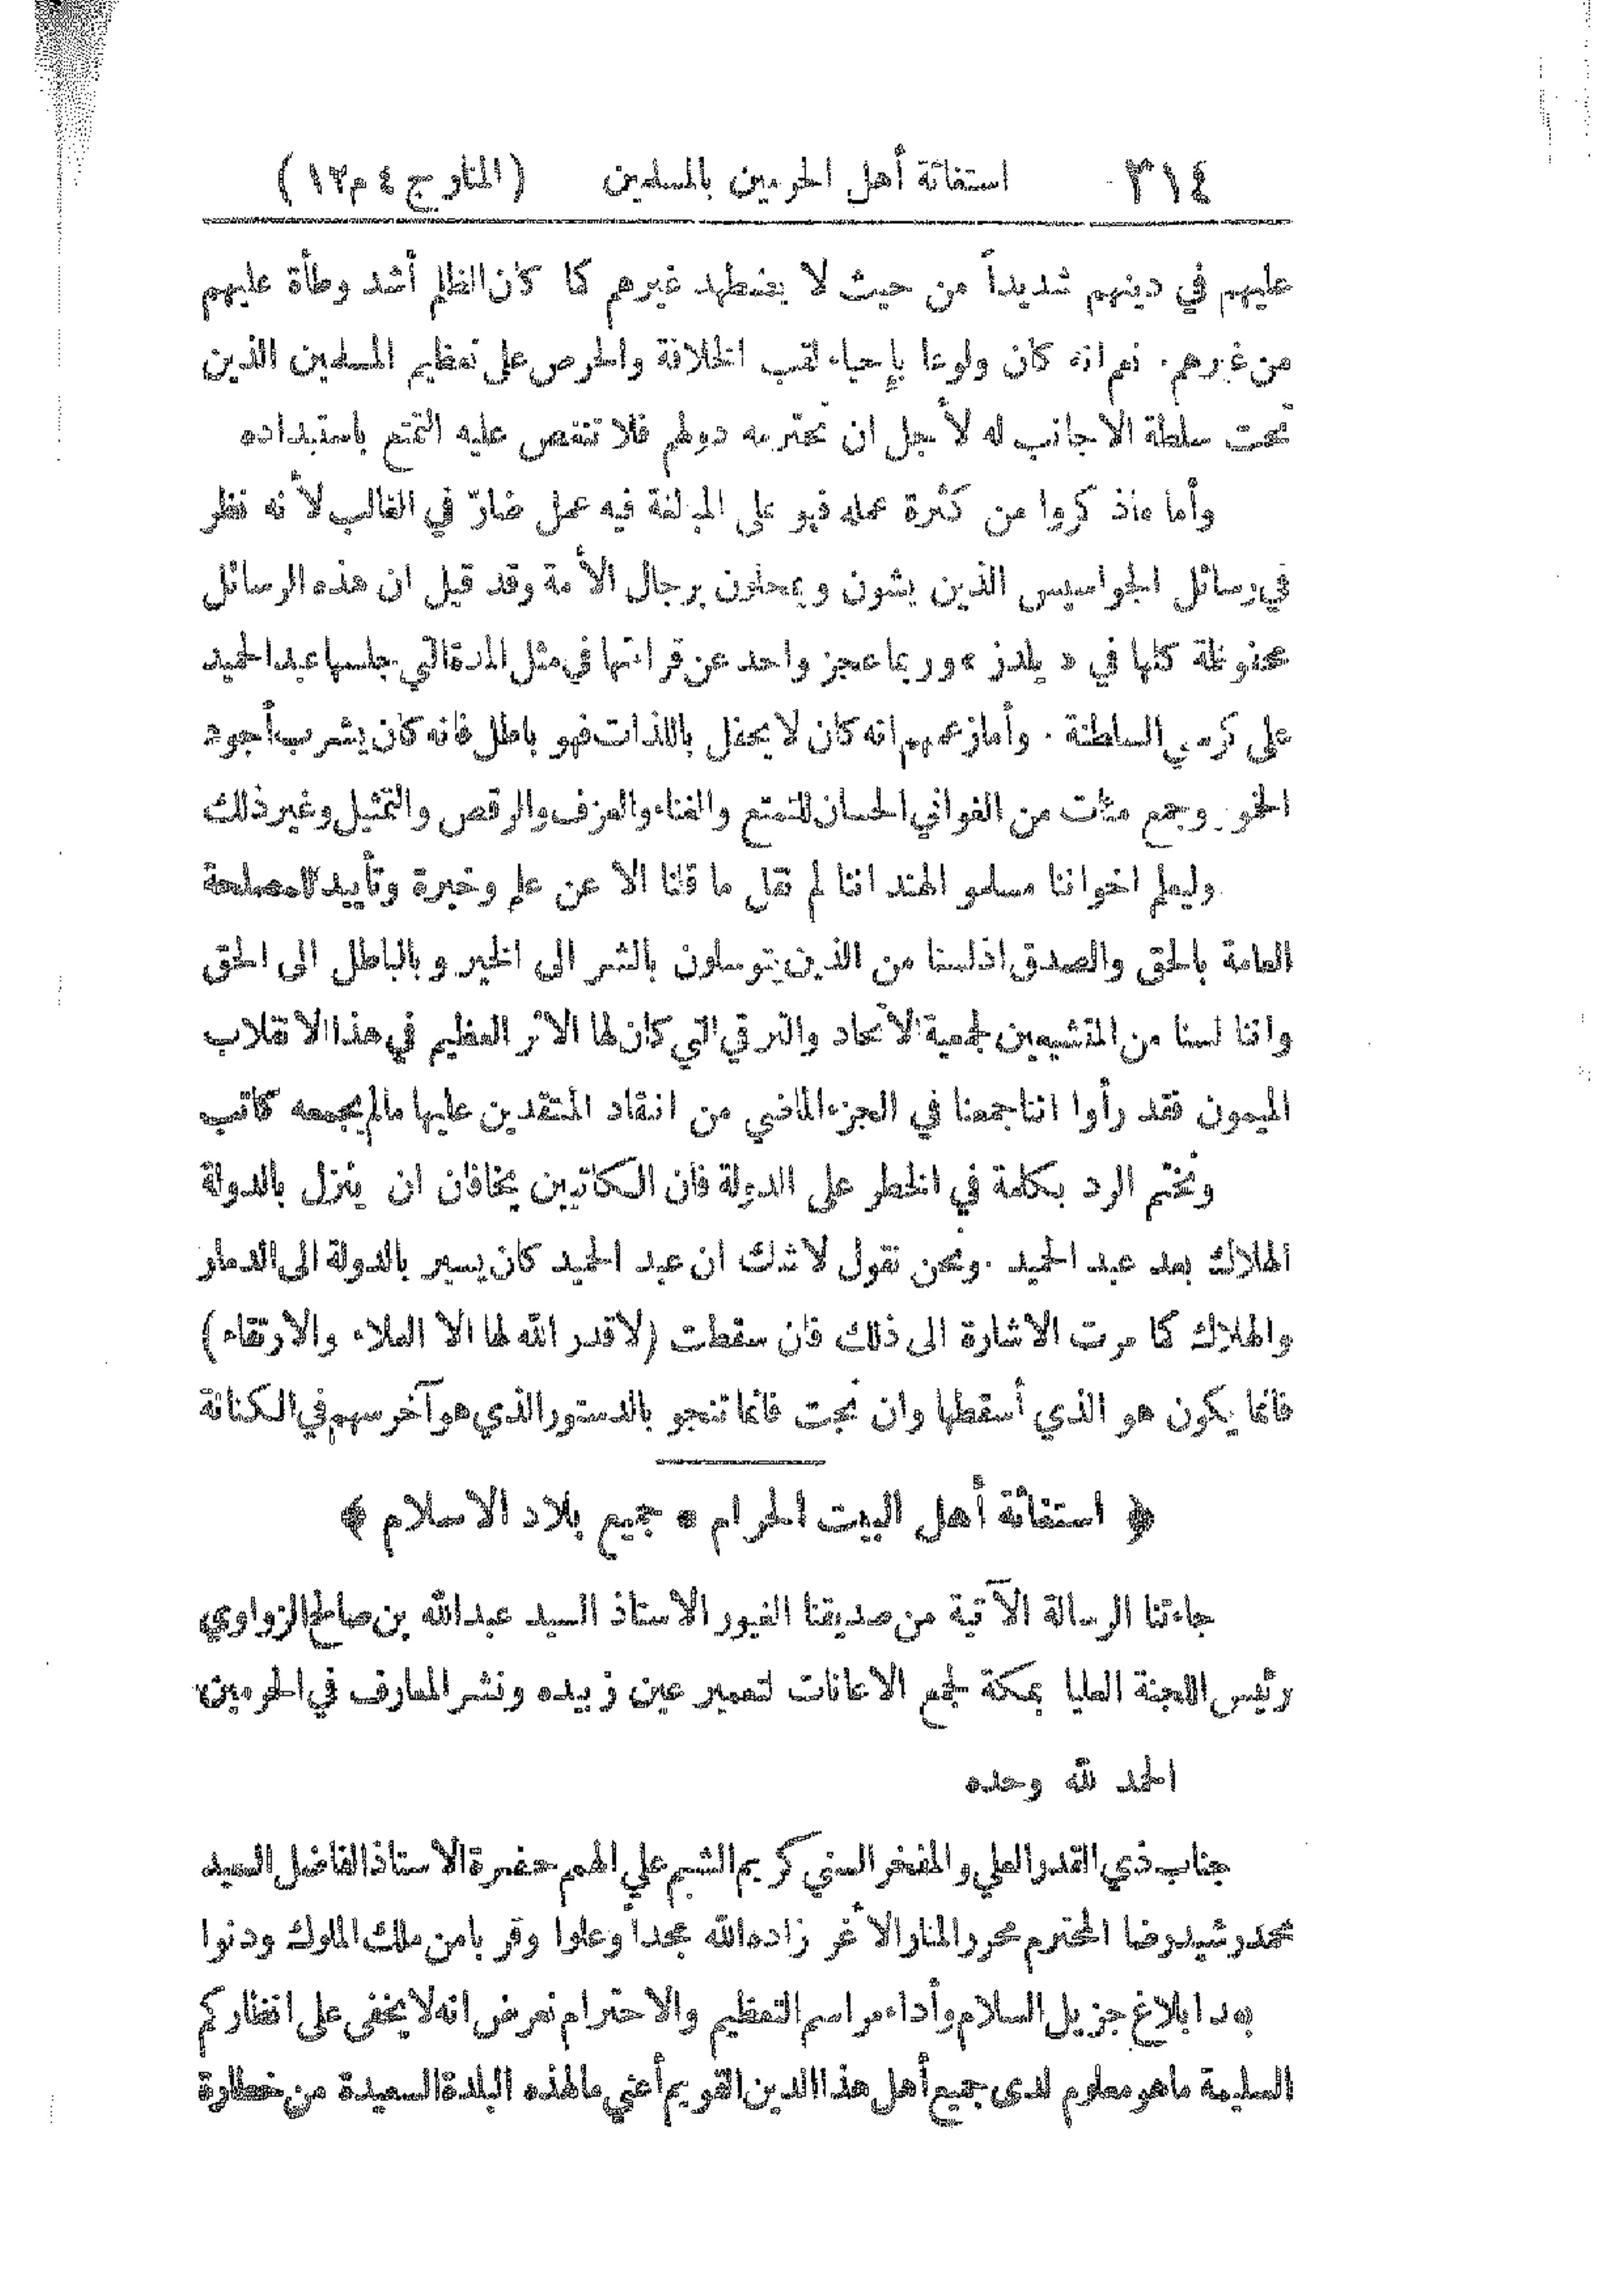 ٣١٤ استغاثة أهل الحرمين بالمسلمين (المنار ج ٤ م ١٢)
عليهم في دينهم شديداً من حيث لا يضطهد غيرهم كما كان الظلم أشد وطأة عليهم
من غيرهم. نعم انه كان ولوعا بإحياء لقب الخلافة والحرص على تعظيم المسلمين الذين
تحت سلطة الاجانب له لأجل ان تحترمه دولهم فلا تنغص عليه التمتع باستبداده
وأما ماذكروا من كثرة عمله فهو على المبالغة فيه عمل ضارّ في الغالب لأنه نظر
في رسائل الجواسيس الذين يشون ويمحلون برجال الأمة وقد قيل ان هذه الرسائل
محفوظة كلها في « يلدز » وربما عجز واحد عن قراءتها في مثل المدة التي جلسها عبد الحميد
على كرسي السلطنة. وأما زعمهم انه كان لا يحفل باللذات فهو باطل فانه كان يشرب أجود
الخمور وجمع مئات من الغواني الحسان للتمتع والغناء والعزف والرقص والتمثيل وغير ذلك
وليعلم اخواننا مسلمو الهند اننا لم نقل ما قلنا الا عن علم وخبرة وتأييد للمصلحة
العامة بالحق والصدق اذ لسنا من الذين يتوسلون بالشر الى الخير وبالباطل الى الحق
واننا لسنا من المتشيعين لجمعية الاتحاد والترقي التي كان لها الاثر العظيم في هذا الانقلاب
الميمون فقد رأوا اننا جمعنا في الجزء الماضي من انتقاد المنتقدين عليها مالم يجمعه كاتب
ونختم الرد بكلمة في الخطر على الدولة فان الكاتبين يخافان ان ينزل بالدولة
الهلاك بعد عبد الحميد. ونحن نقول لا شك ان عبد الحميد كان يسير بالدولة الى الدمار
والهلاك كما مرت الاشارة الى ذلك فان سقطت (لا قدر الله لها الا العلاء والارتقاء)
فانما يكون هو الذي أسقطها وان نجت فانما تنجو بالدستور الذي هو آخر سهم في الكنانة
﴿ استغاثة أهل البيت الحرام * بجميع بلاد الاسلام ﴾
جاءتنا الرسالة الآتية من صديقنا الغيور الاستاذ السيد عبد الله بن صالح الزواوي
رئيس اللجنة العليا بمكة لجمع الاعانات لتعمير عين زبيده ونشر المعارف في الحرمين
الحمد لله وحده
جناب ذي القدر العلي والمفخر السني كريم الشيم علي الهمم حضرة الاستاذ الفاضل السيد
محمد رشيد رضا المحترم محرر المنار الأغر زاده الله مجداً وعلوا وقربا من ملك الملوك ودنوا
بعد ابلاغ جزيل السلام وأداء مراسم التعظيم والاحترام نعرض انه لا يخفى على انظاركم
السليمة ما هو معلوم لدى جميع أهل هذا الدين القويم أعني ما لهذه البلدة السعيدة من خطارة